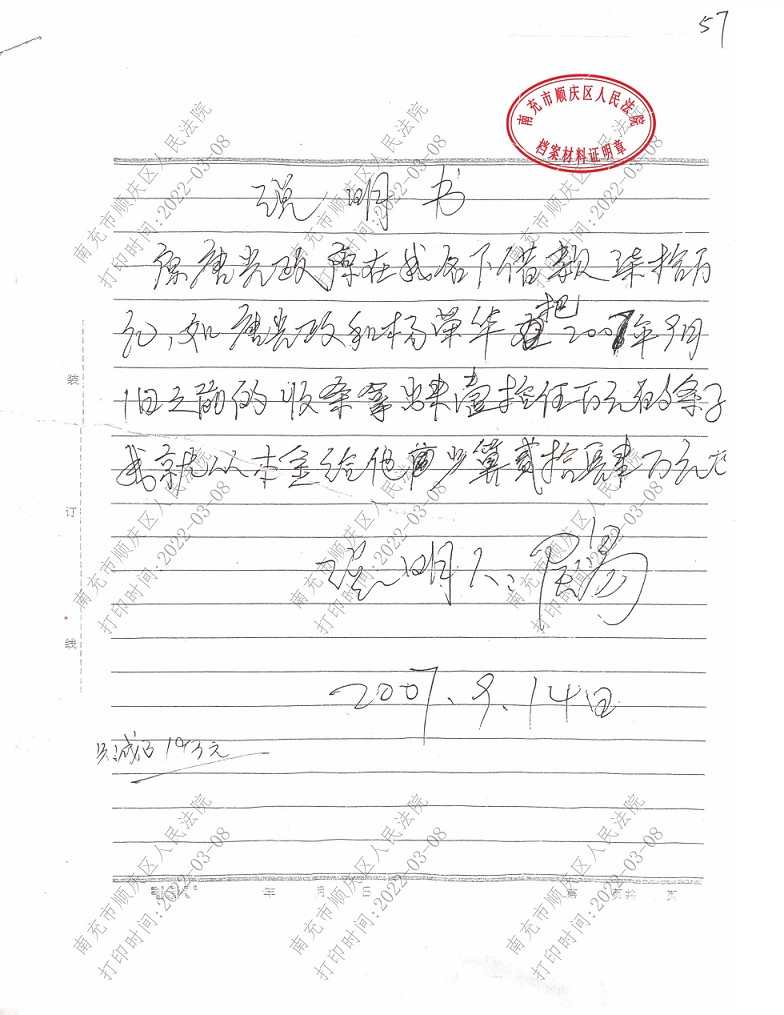 57
南充市顺庆区人民法院
档案材料证明章
说明书
原唐光政原在我名下借款柒拾万
元,如唐光政和杨荣华把2007年9月
1日之前的收条拿出来壹拾伍万元的条子
我就从本金给他少算贰拾肆万元
说明人:
2007.9.14日
装
订
线
年 月 日
第 页
南充市顺庆区人民法院
打印时间:2022-03-08
南充市顺庆区人民法院
打印时间:2022-03-08
南充市顺庆区人民法院
打印时间:2022-03-08
南充市顺庆区人民法院
打印时间:2022-03-08
南充市顺庆区人民法院
打印时间:2022-03-08
南充市顺庆区人民法院
打印时间:2022-03-08
南充市顺庆区人民法院
打印时间:2022-03-08
南充市顺庆区人民法院
打印时间:2022-03-08
南充市顺庆区人民法院
打印时间:2022-03-08